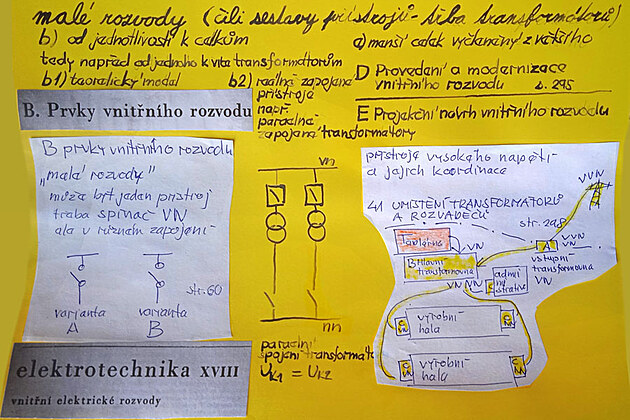 malé rozvody (čili sestavy přístrojů - třba transformátorů)
b) od jednotlivostí k celkům
tedy napřed od jednoho k víta transformátorům
b1) teoretický model
b2) reálně zapojené
přístroje
např.
paralelně
zapojené transformátory
a) menší celek vyčleněný z většího
D Provedení a modernizace
vnitřního rozvodu s. 295
E Projekční návrh vnitřního rozvodu
B. Prvky vnitřního rozvodu
B prvky vnitřního rozvodu
„malé rozvody"
může být jeden přístroj
třeba spínač VN
ale v různém zapojení
str. 60
varianta
A
varianta
B
elektrotechnika XVIII
vnitřní elektrické rozvody
vn
nn
paralelní
spojení transformáto
UK1 = UK2
přístroje vysokého napětí
a jejich koordinace
41 UMÍSTĚNÍ TRANSFORMÁTORŮ
A ROZVADĚČŮ
str. 298
VVN
Teplárna
VN
B hlavní
transformovna
VN VN
A
VVN
VN
vstupní
transformovna
VN
C
admi
ni
strativa
výrobní
hala
výrobní
hala